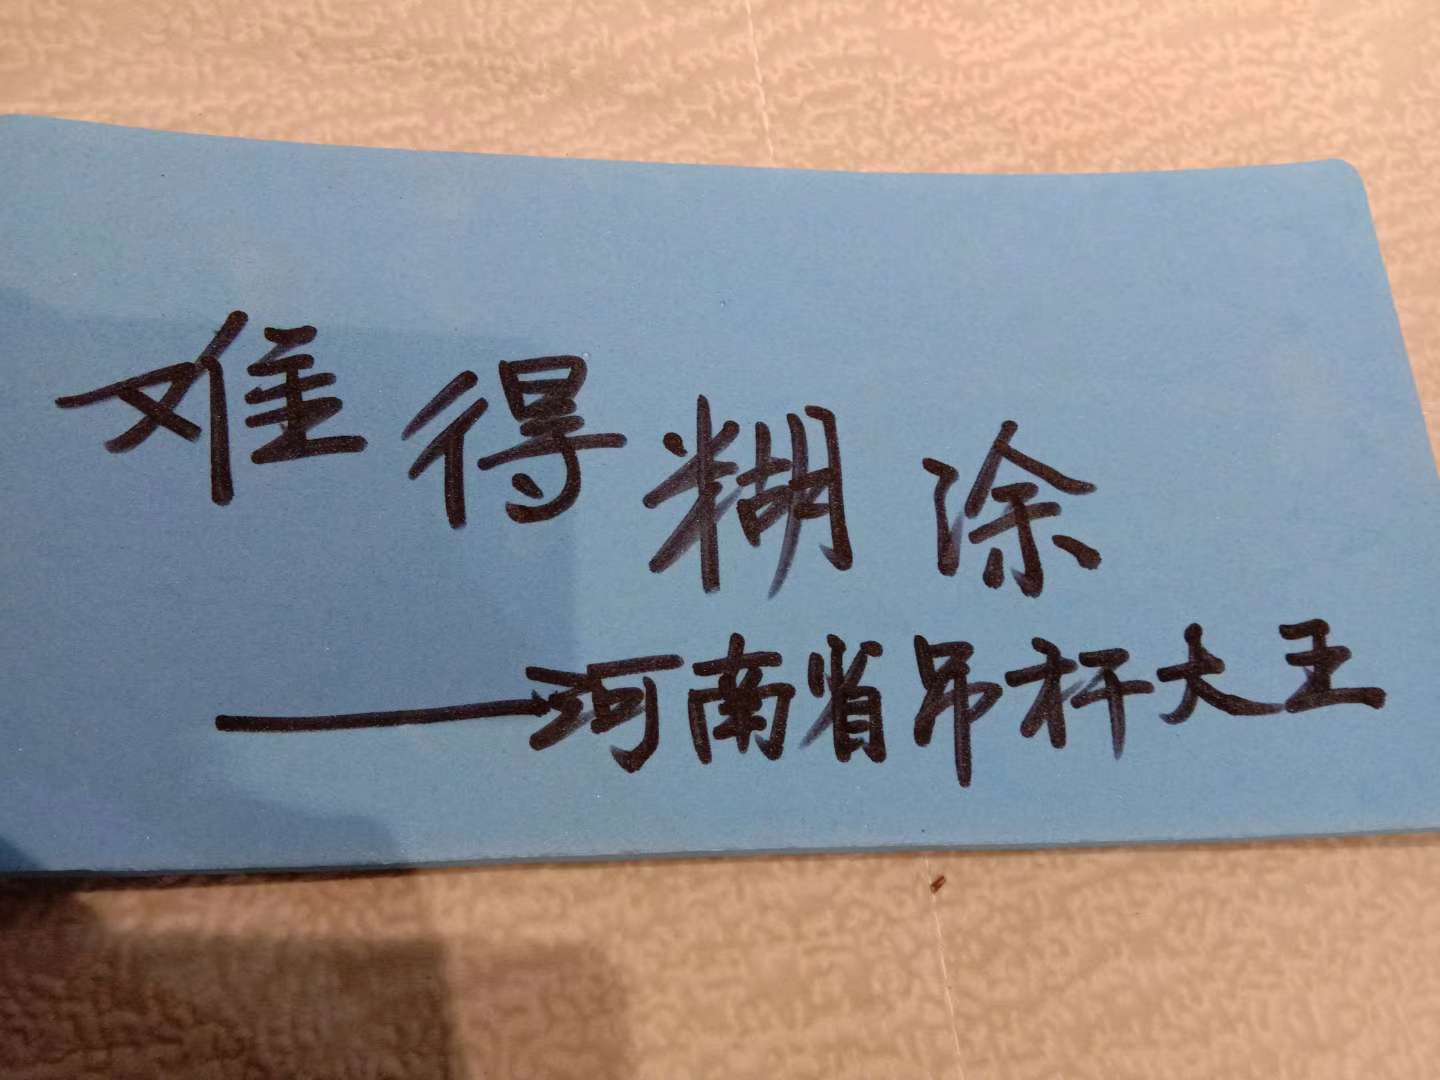 难得糊涂
——河南省吊杆大王